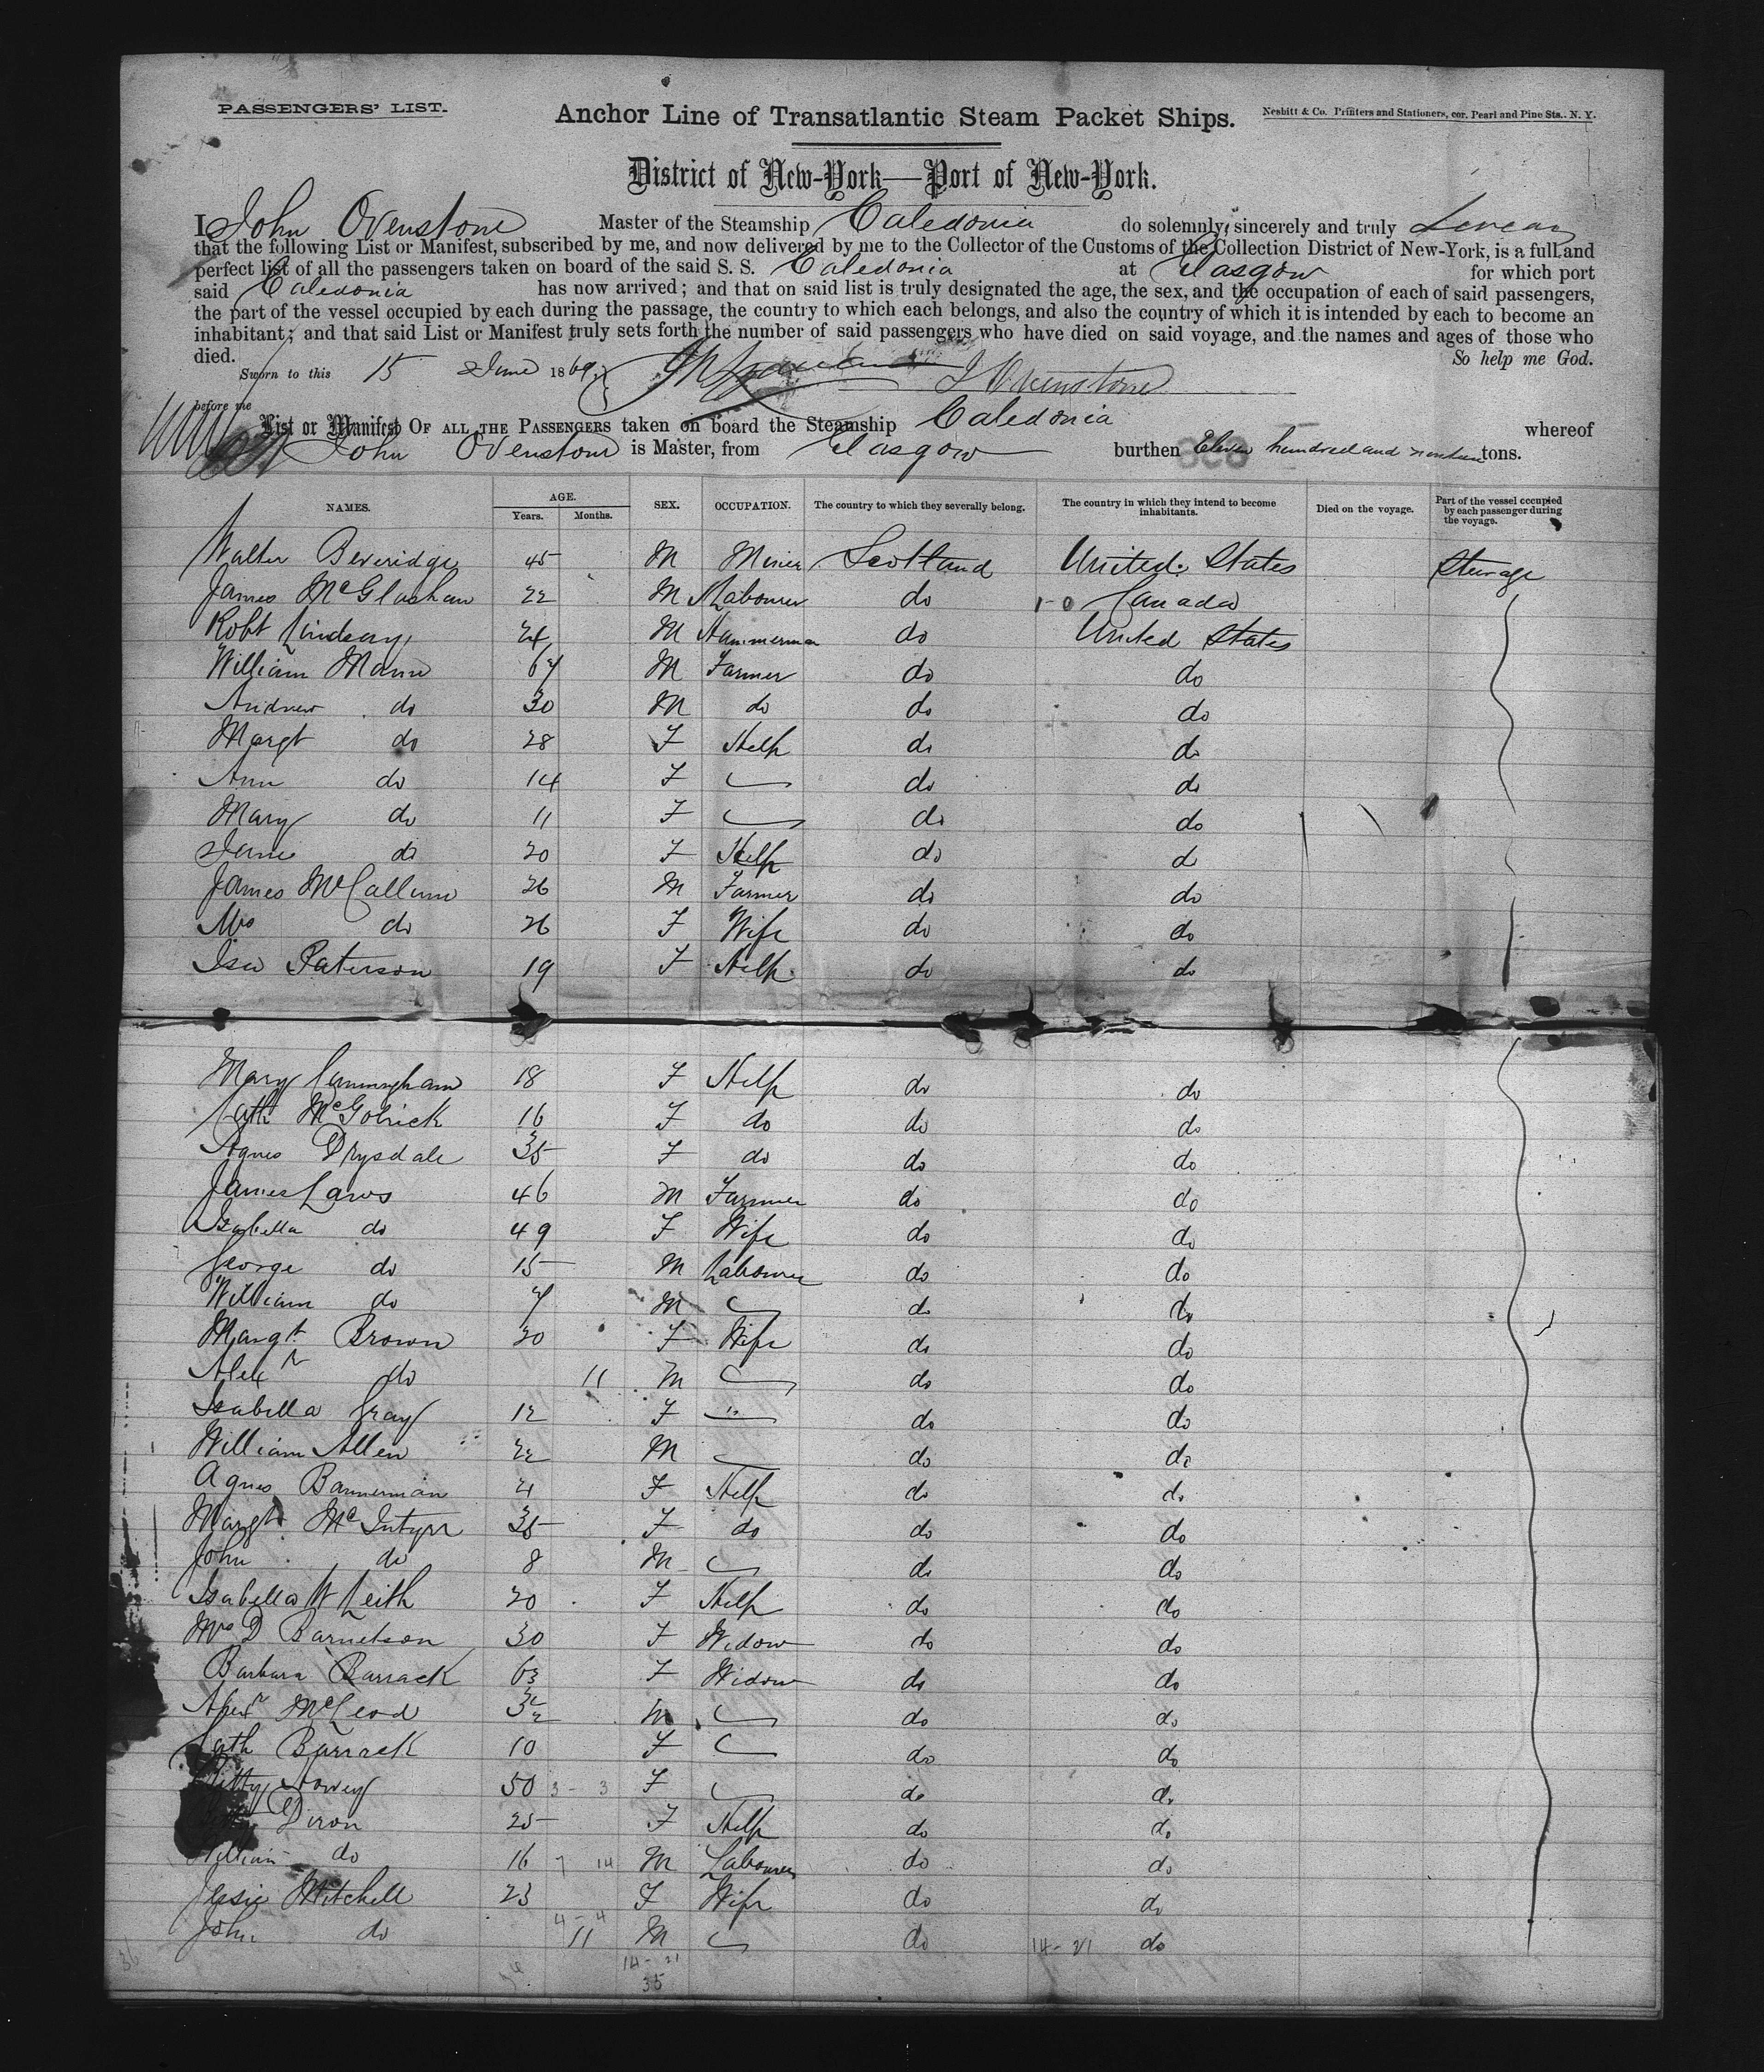 PASSENGERS' LIST.
Anchor Line of Transatlantic Steam Packet Ships.
Nesbitt & Co. Printers and Stationers, cor. Pearl and Pine Sts., N. Y.
District of New-York—Port of New-York.
I John Ovenstone Master of the Steamship Caledonia do solemnly, sincerely and truly Swear
that the following List or Manifest, subscribed by me, and now delivered by me to the Collector of the Customs of the Collection District of New-York, is a full and
perfect list of all the passengers taken on board of the said S. S. Caledonia at Glasgow for which port
said Caledonia has now arrived; and that on said list is truly designated the age, the sex, and the occupation of each of said passengers,
the part of the vessel occupied by each during the passage, the country to which each belongs, and also the country of which it is intended by each to become an
inhabitant; and that said List or Manifest truly sets forth the number of said passengers who have died on said voyage, and the names and ages of those who
died. So help me God.
Sworn to this 15 June 1869. J Ovenstone
before me
List or Manifest OF ALL THE PASSENGERS taken on board the Steamship Caledonia whereof
John Ovenstone is Master, from Glasgow burthen Eleven hundred and tons.
NAMES. AGE. Years. Months. SEX. OCCUPATION. The country to which they severally belong. The country in which they intend to become inhabitants. Died on the voyage. Part of the vessel occupied by each passenger during the voyage.
Walter Beveridge 45 M Miner Scotland United States Steerage
James McGlashan 22 M Labourer do 1-0 Canada
Robt Lindsay 24 M Hammerman do United States
William Mann 67 M Farmer do do
Andrew do 30 M do do do
Margt do 28 F Help do do
Ann do 14 F do do
Mary do 11 F do do
Jane do 20 F Help do do
James McCallum 26 M Farmer do do
Mrs do 26 F Wife do do
Isa Paterson 19 F Help do do
Mary Cunningham 18 F Help do do
Cath McGolrick 16 F do do do
Agnes Drysdale 35 F do do do
James Laws 46 M Farmer do do
Isabella do 49 F Wife do do
George do 15 M Labourer do do
William do 7 M do do
Margt Brown 20 F Wife do do
Alexr do 11 M do do
Isabella Gray 12 F " do do
William Allen 22 M do do
Agnes Bannerman 21 F Help do do
Margt McIntyre 35 F do do do
John do 8 M do do
Isabella W Leith 20 F Help do do
Mrs D Barnetson 30 F Widow do do
Barbara Barrack 63 F Widow do do
Alexr McLeod 32 M do do
Cath Barrack 10 F do do
50 3 - 3 F do do
Dixon 25 F Help do do
William do 16 7 14 M Labourer do do
Jessie Mitchell 23 F Wife do do
John do 4 - 4 11 M do 14-21 do
14 - 21
35